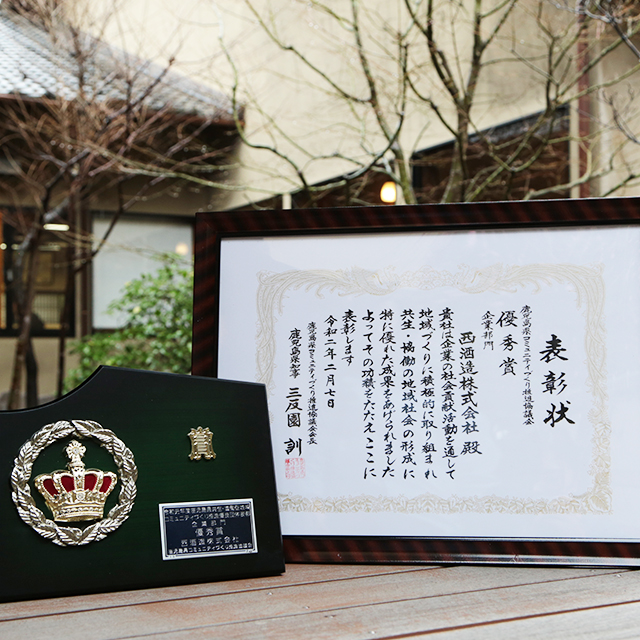 表彰状
鹿児島県コミュニティづくり推進協議会
優秀賞
企業部門
西酒造株式会社 殿
貴社は企業の社会貢献活動を通して
地域づくりに積極的に取り組まれ
共生・協働の地域社会の形成に
特に優れた成果をあげられました
よってその功績をたたえここに
表彰します
令和二年二月七日
鹿児島県コミュニティづくり推進協議会会長
鹿児島県知事 三反園 訓
賞
企業部門
優秀賞
西酒造株式会社
鹿児島県コミュニティづくり推進協議会